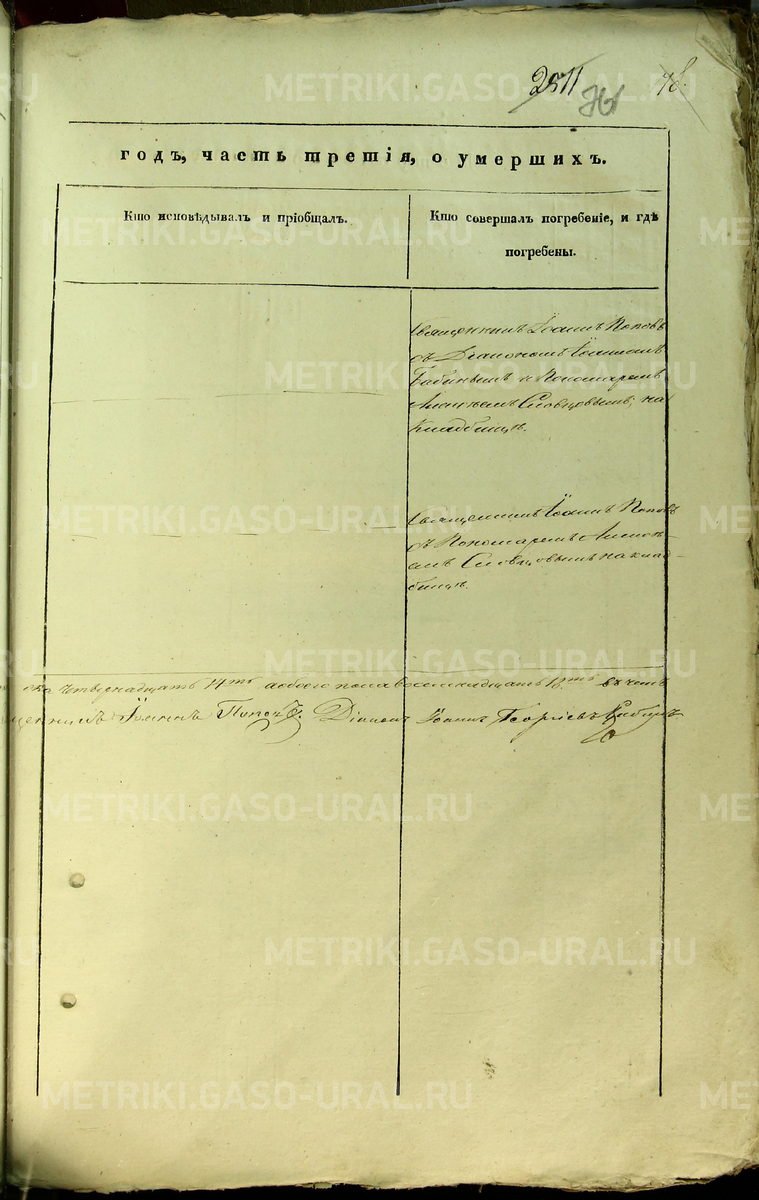 2511
78.
годъ, часть третія, о умершихъ.
Кто исповѣдывалъ и пріобщалъ.
Кто совершалъ погребеніе, и гдѣ
погребены.
Священникъ Іоаннъ Поповъ
съ Діакономъ Іоанномъ
Бабинымъ и Пономаремъ
Словцовымъ; на
кладбищѣ.
Священникъ Іоаннъ Поповъ
съ Пономаремъ
Словцовымъ на клад-
бищѣ.
четырнадцать 14ть, а обоего пола восемнадцать 18ть. въ чемъ
Іоаннъ Поповъ. Діаконъ Іоаннъ Георгіевъ Бабинъ
METRIKI.GASO-URAL.RU